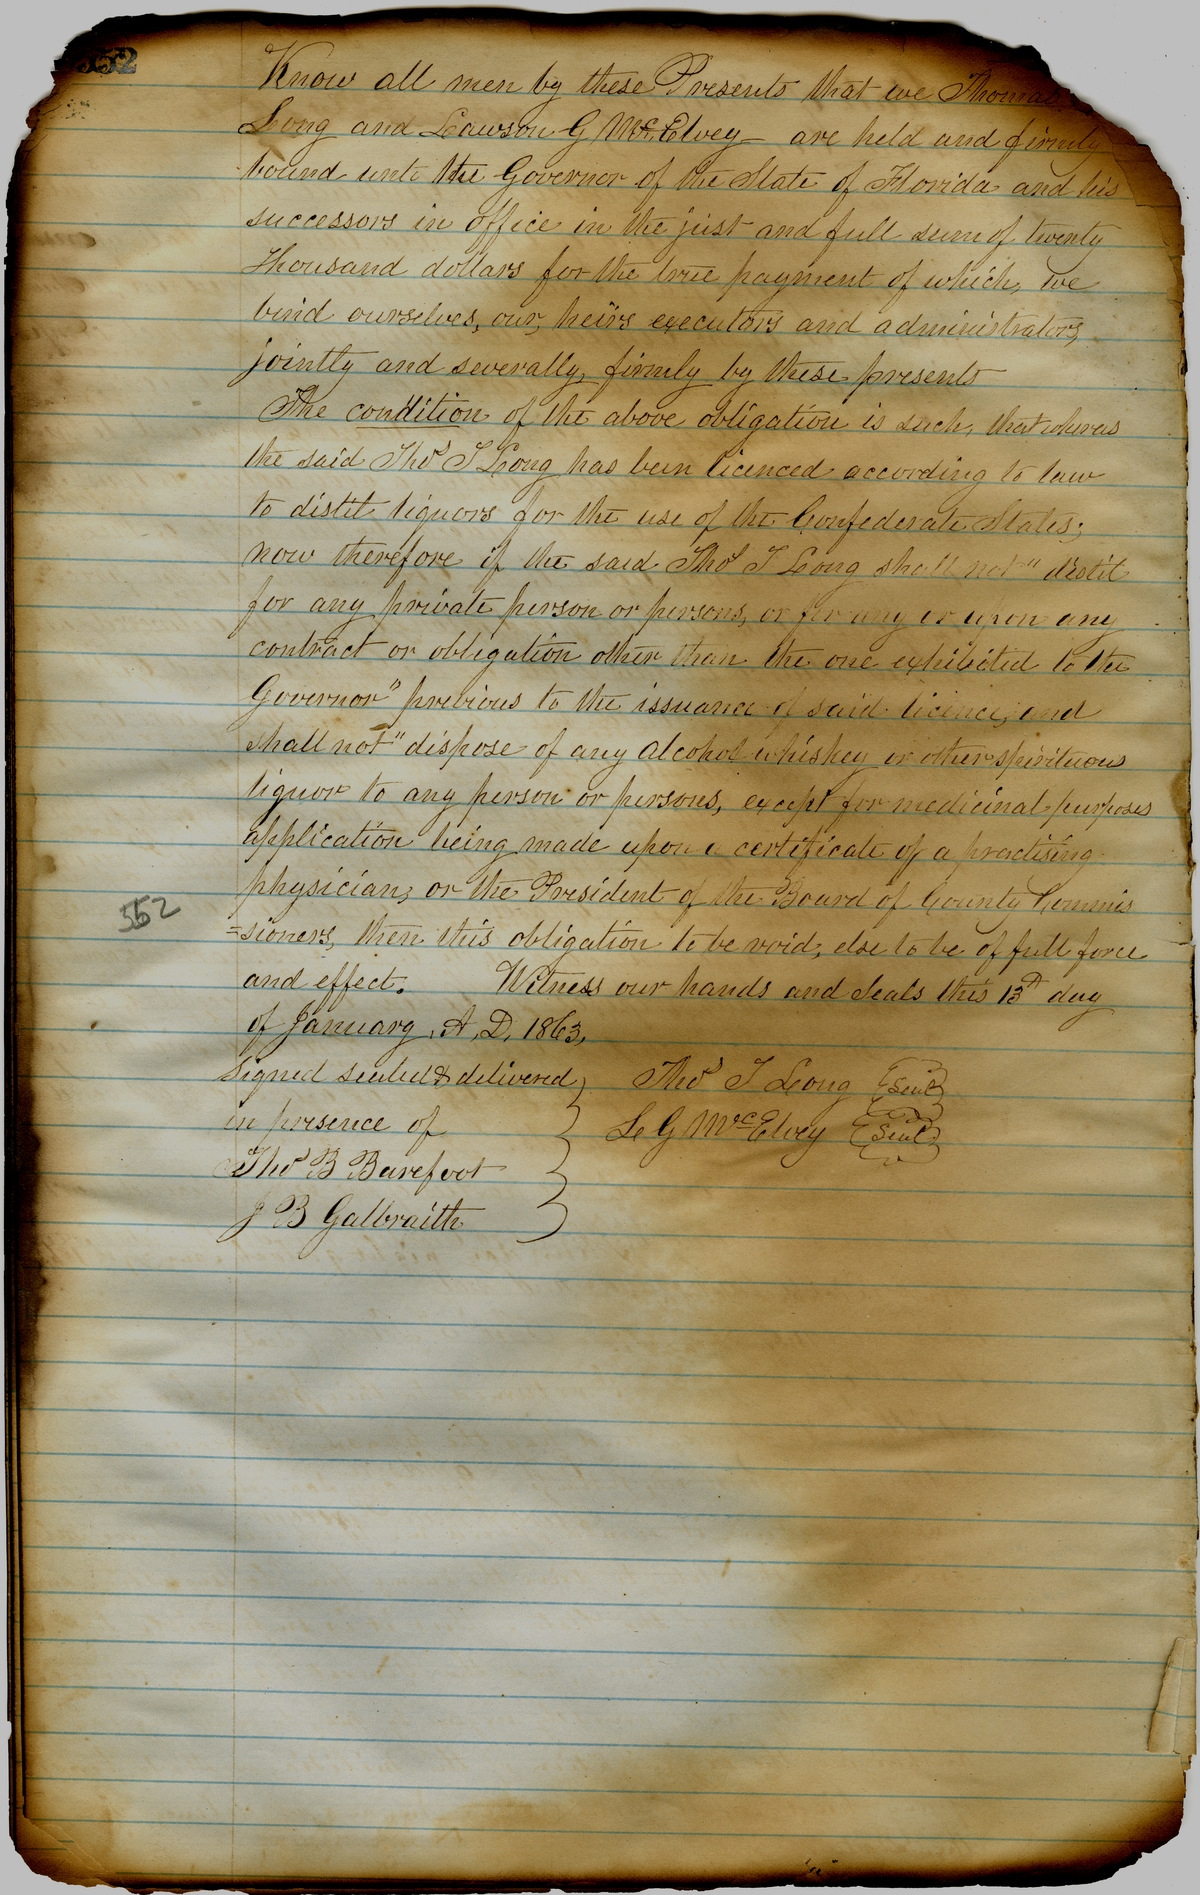 552
Know all men by these Presents that we Thomas
Long and Lawson G McElvey are held and firmly
bound unto the Governor of the State of Florida and his
successors in office in the just and full sum of twenty
thousand dollars for the true payment of which, we
bind ourselves, our, heirs executors and administrators,
jointly and severally, firmly by these presents
The condition of the above obligation is such, that wheras
the said Thos T Long has been licenced according to law
to distil liquors for the use of the Confederate States;
now therefore if the said Thos T Long shall not "distil
for any private person or persons, or for any or upon any
contract or obligation other than the one exhibited to the
Governor" previous to the issuance of said licence, and
shall not "dispose of any alcohol whiskey or other spirituous
liquor to any person or persons, except for medicinal purposes
application being made upon a certificate of a practising
physician, or the President of the Board of County Commis
552
=sioners, then this obligation to be void, else to be of full force
and effect. Witness our hands and Seals this 13th day
of January, A, D, 1863,
Signed sealed & delivered Thos T Long {Seal}
in presence of L G McElvey {Seal}
Thos B Barefoot
J B Galbraith